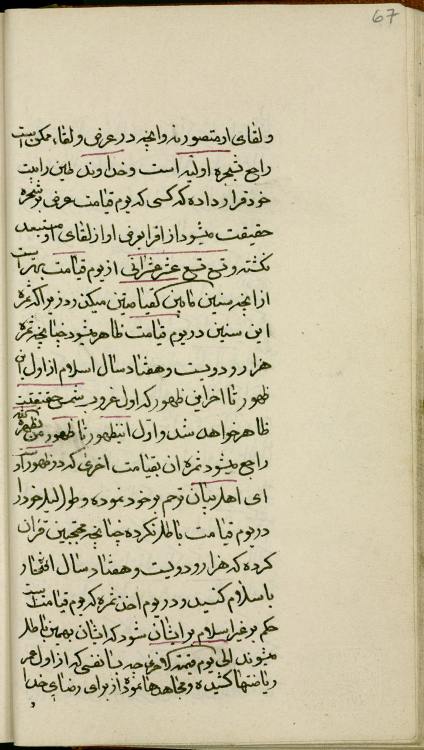 67
و لقای او متصور نه و آنچه در عرفی و لقاء ممکن است
راجع بشجره اولیه است و خداوند طین را بیت
خود قرار داده که کسی که یوم قیامت عرفی بر شجره
حقیقت میشود از اقرار برفی او از لقای او مستبعد
نگشته و تسع تسع عشر عشرانی از یوم قیامت بهتر است
از آنچه سنین مابین کقیامتین میکن روزیرا که ثمره
این سنین در یوم قیامت ظاهر میشود چنانچه ثمره
هزار و دویست و هفتاد سال اسلام از اول این
ظهور تا آخر این ظهور که اول غروب شمس حقیقت
ظاهر خواهد شد و اول این ظهور تا ظهور من یظهره الله
راجع میشود ثمره آن بقیامت اخری که در ظهور
ای اهل بیان ترحم بر خود نموده و طول لیل خود را
در یوم قیامت باطل نکرده چنانچه محتجبین قرآن
کرده که هزار و دویست و هفتاد سال افتخار
باسلام کنید و در یوم اخذ ثمره که یوم قیامت است
حکم بر غیر اسلام بر ایشان شود که ایشان بهمین باطل
میشوند الی یوم قیمة چه بسا نفسی که از اول عمر
ریاضتها کشیده و مجاهدها نموده از برای رضای خدا
و